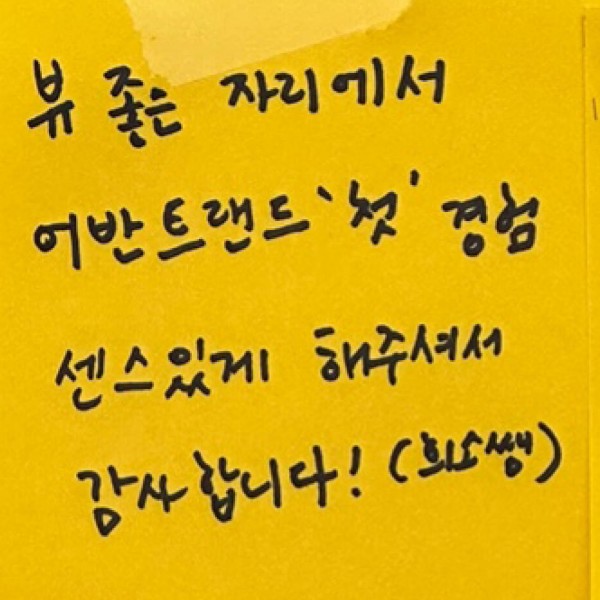 뷰 좋은 자리에서
어반트랜드 '첫' 경험
센스있게 해주셔서
감사합니다! (희소쌤)